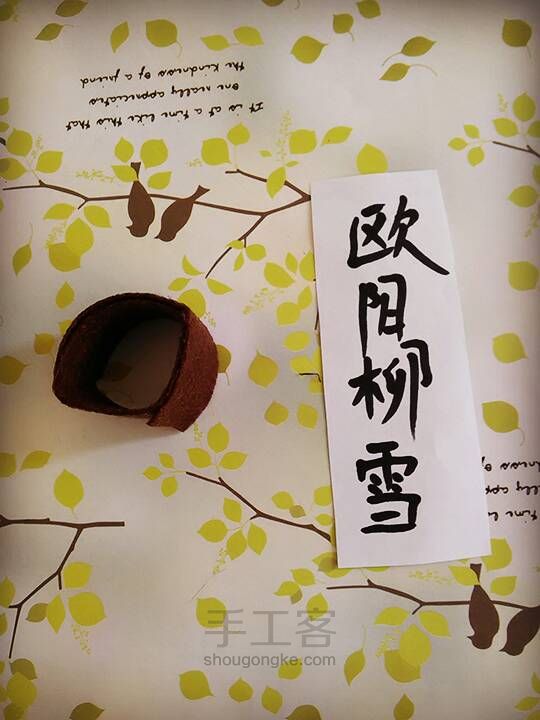 It is at a time like this that
one really appreciates
the kindness of a friend
欧阳柳雪
手工客
shougongke.com